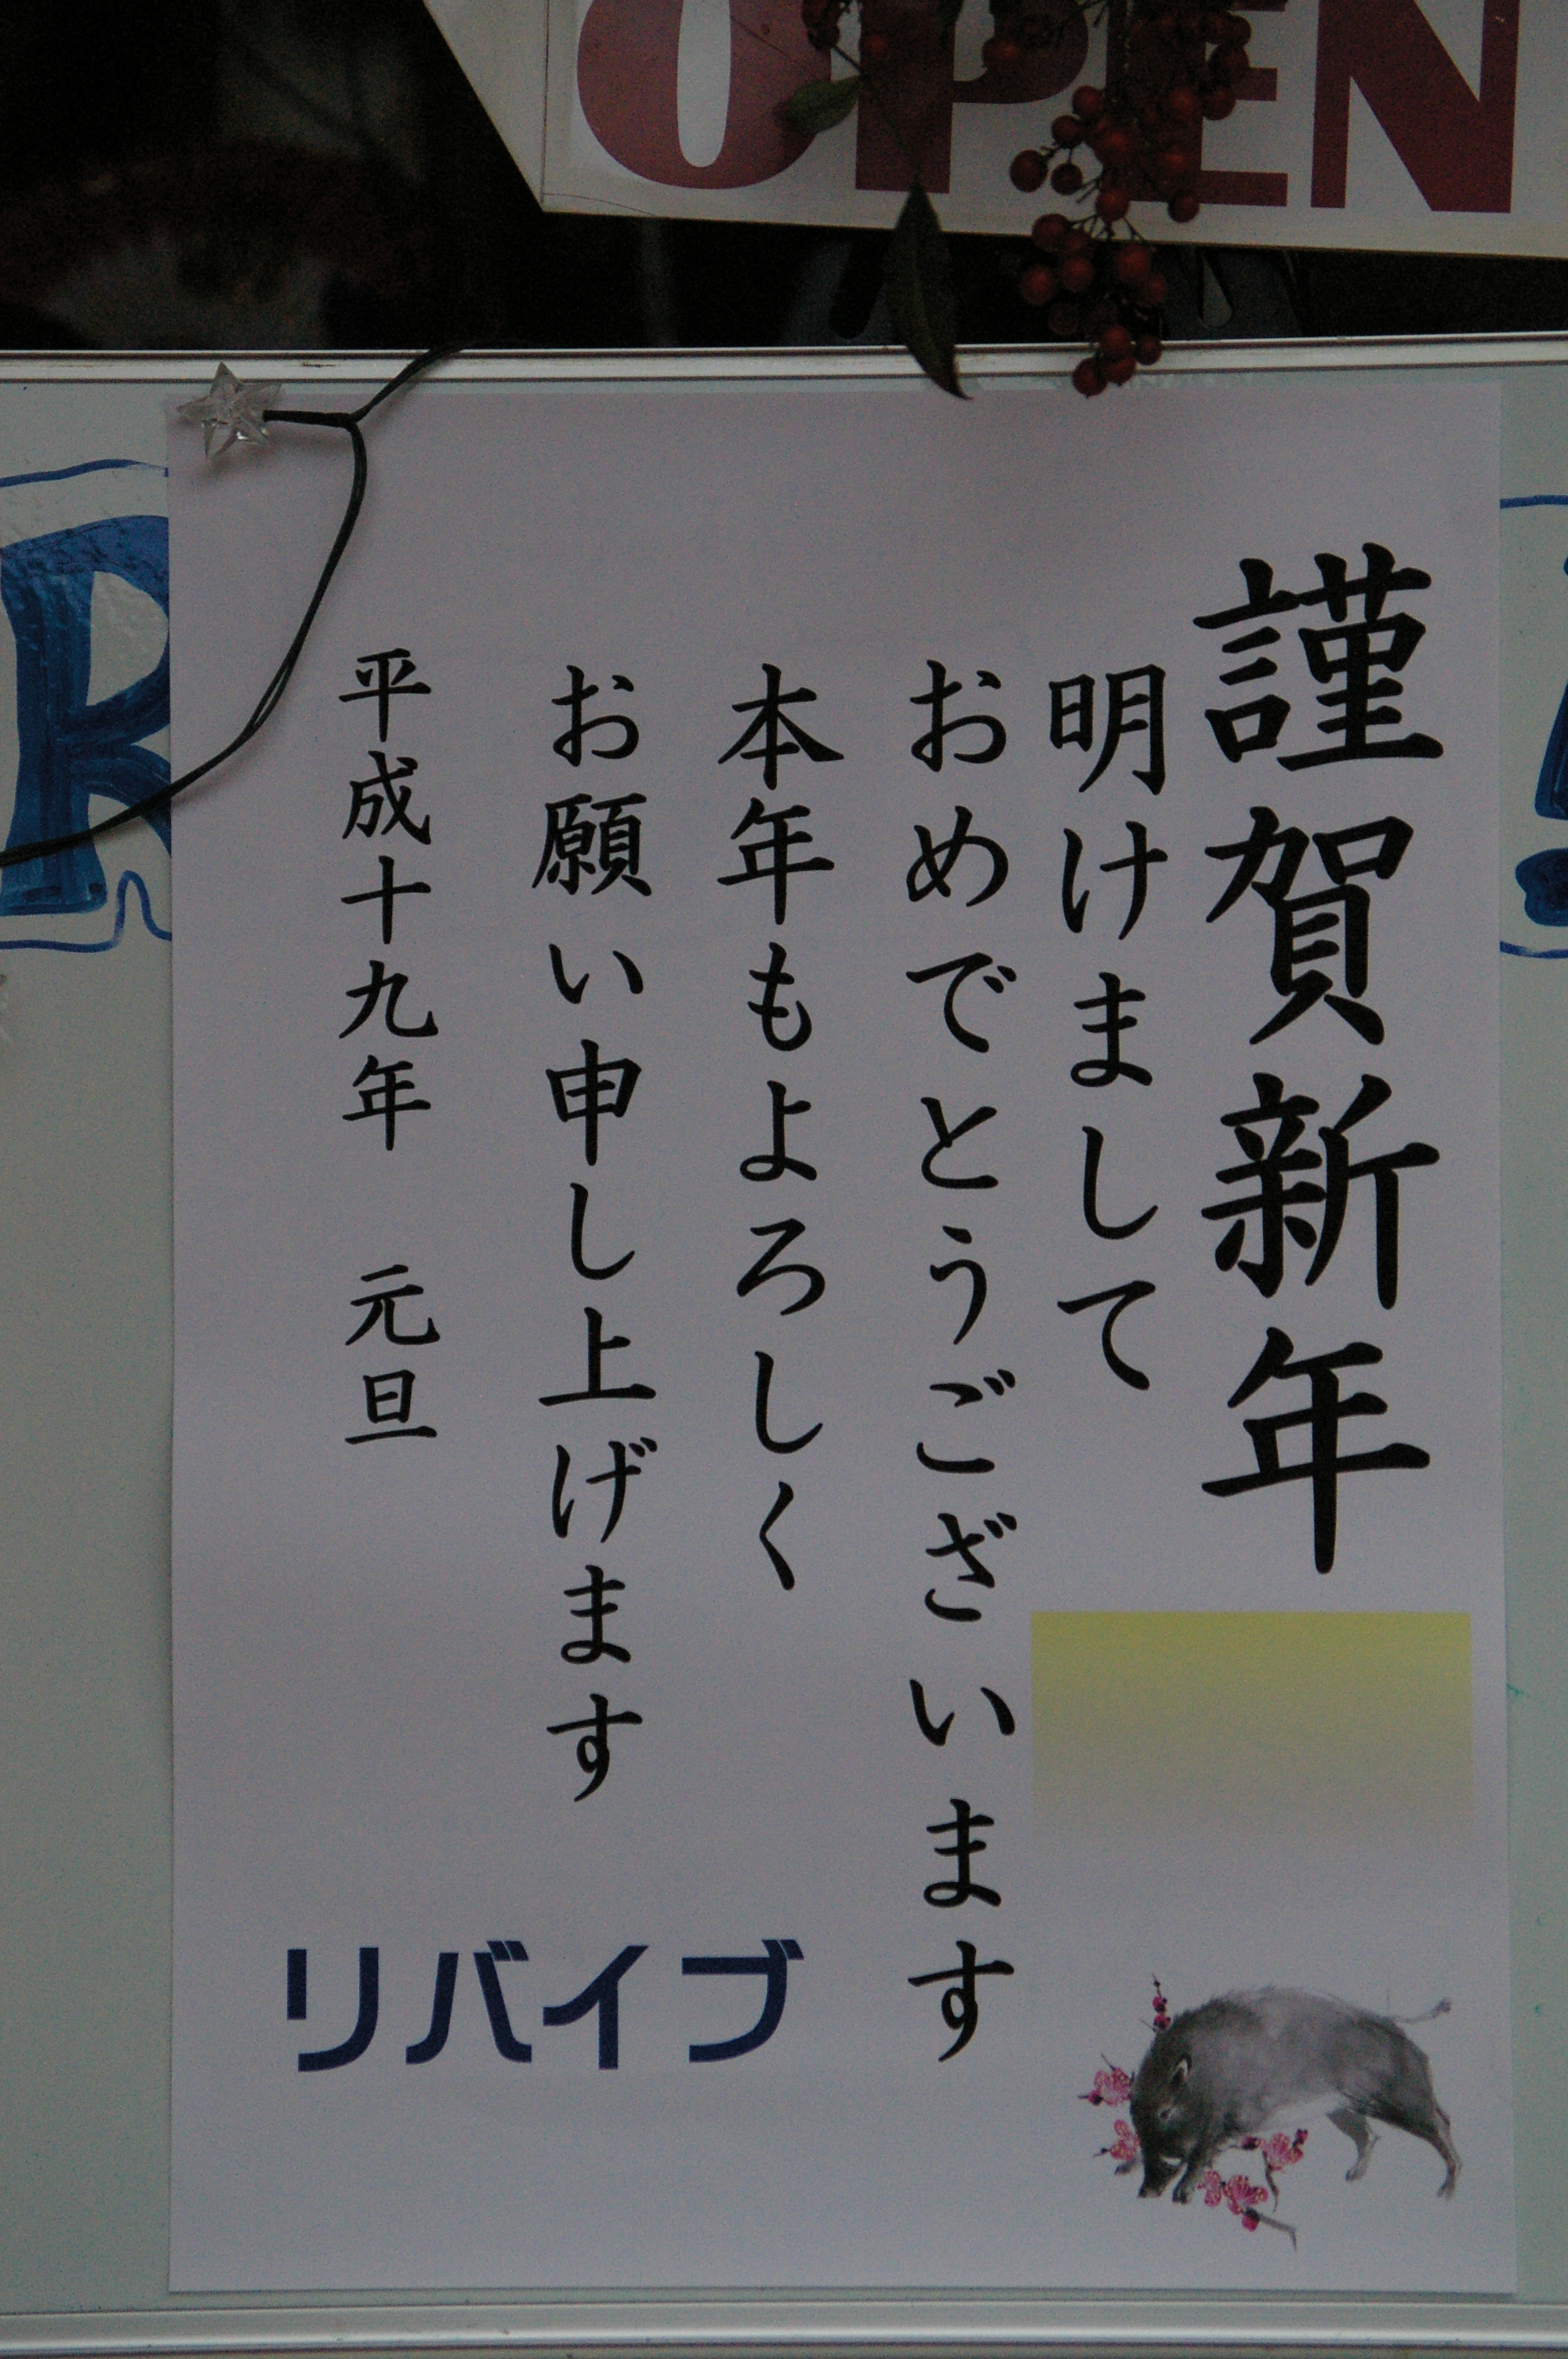 OPEN
R
謹賀新年
明けまして
おめでとうございます
本年もよろしく
お願い申し上げます
平成十九年 元旦
リバイブ